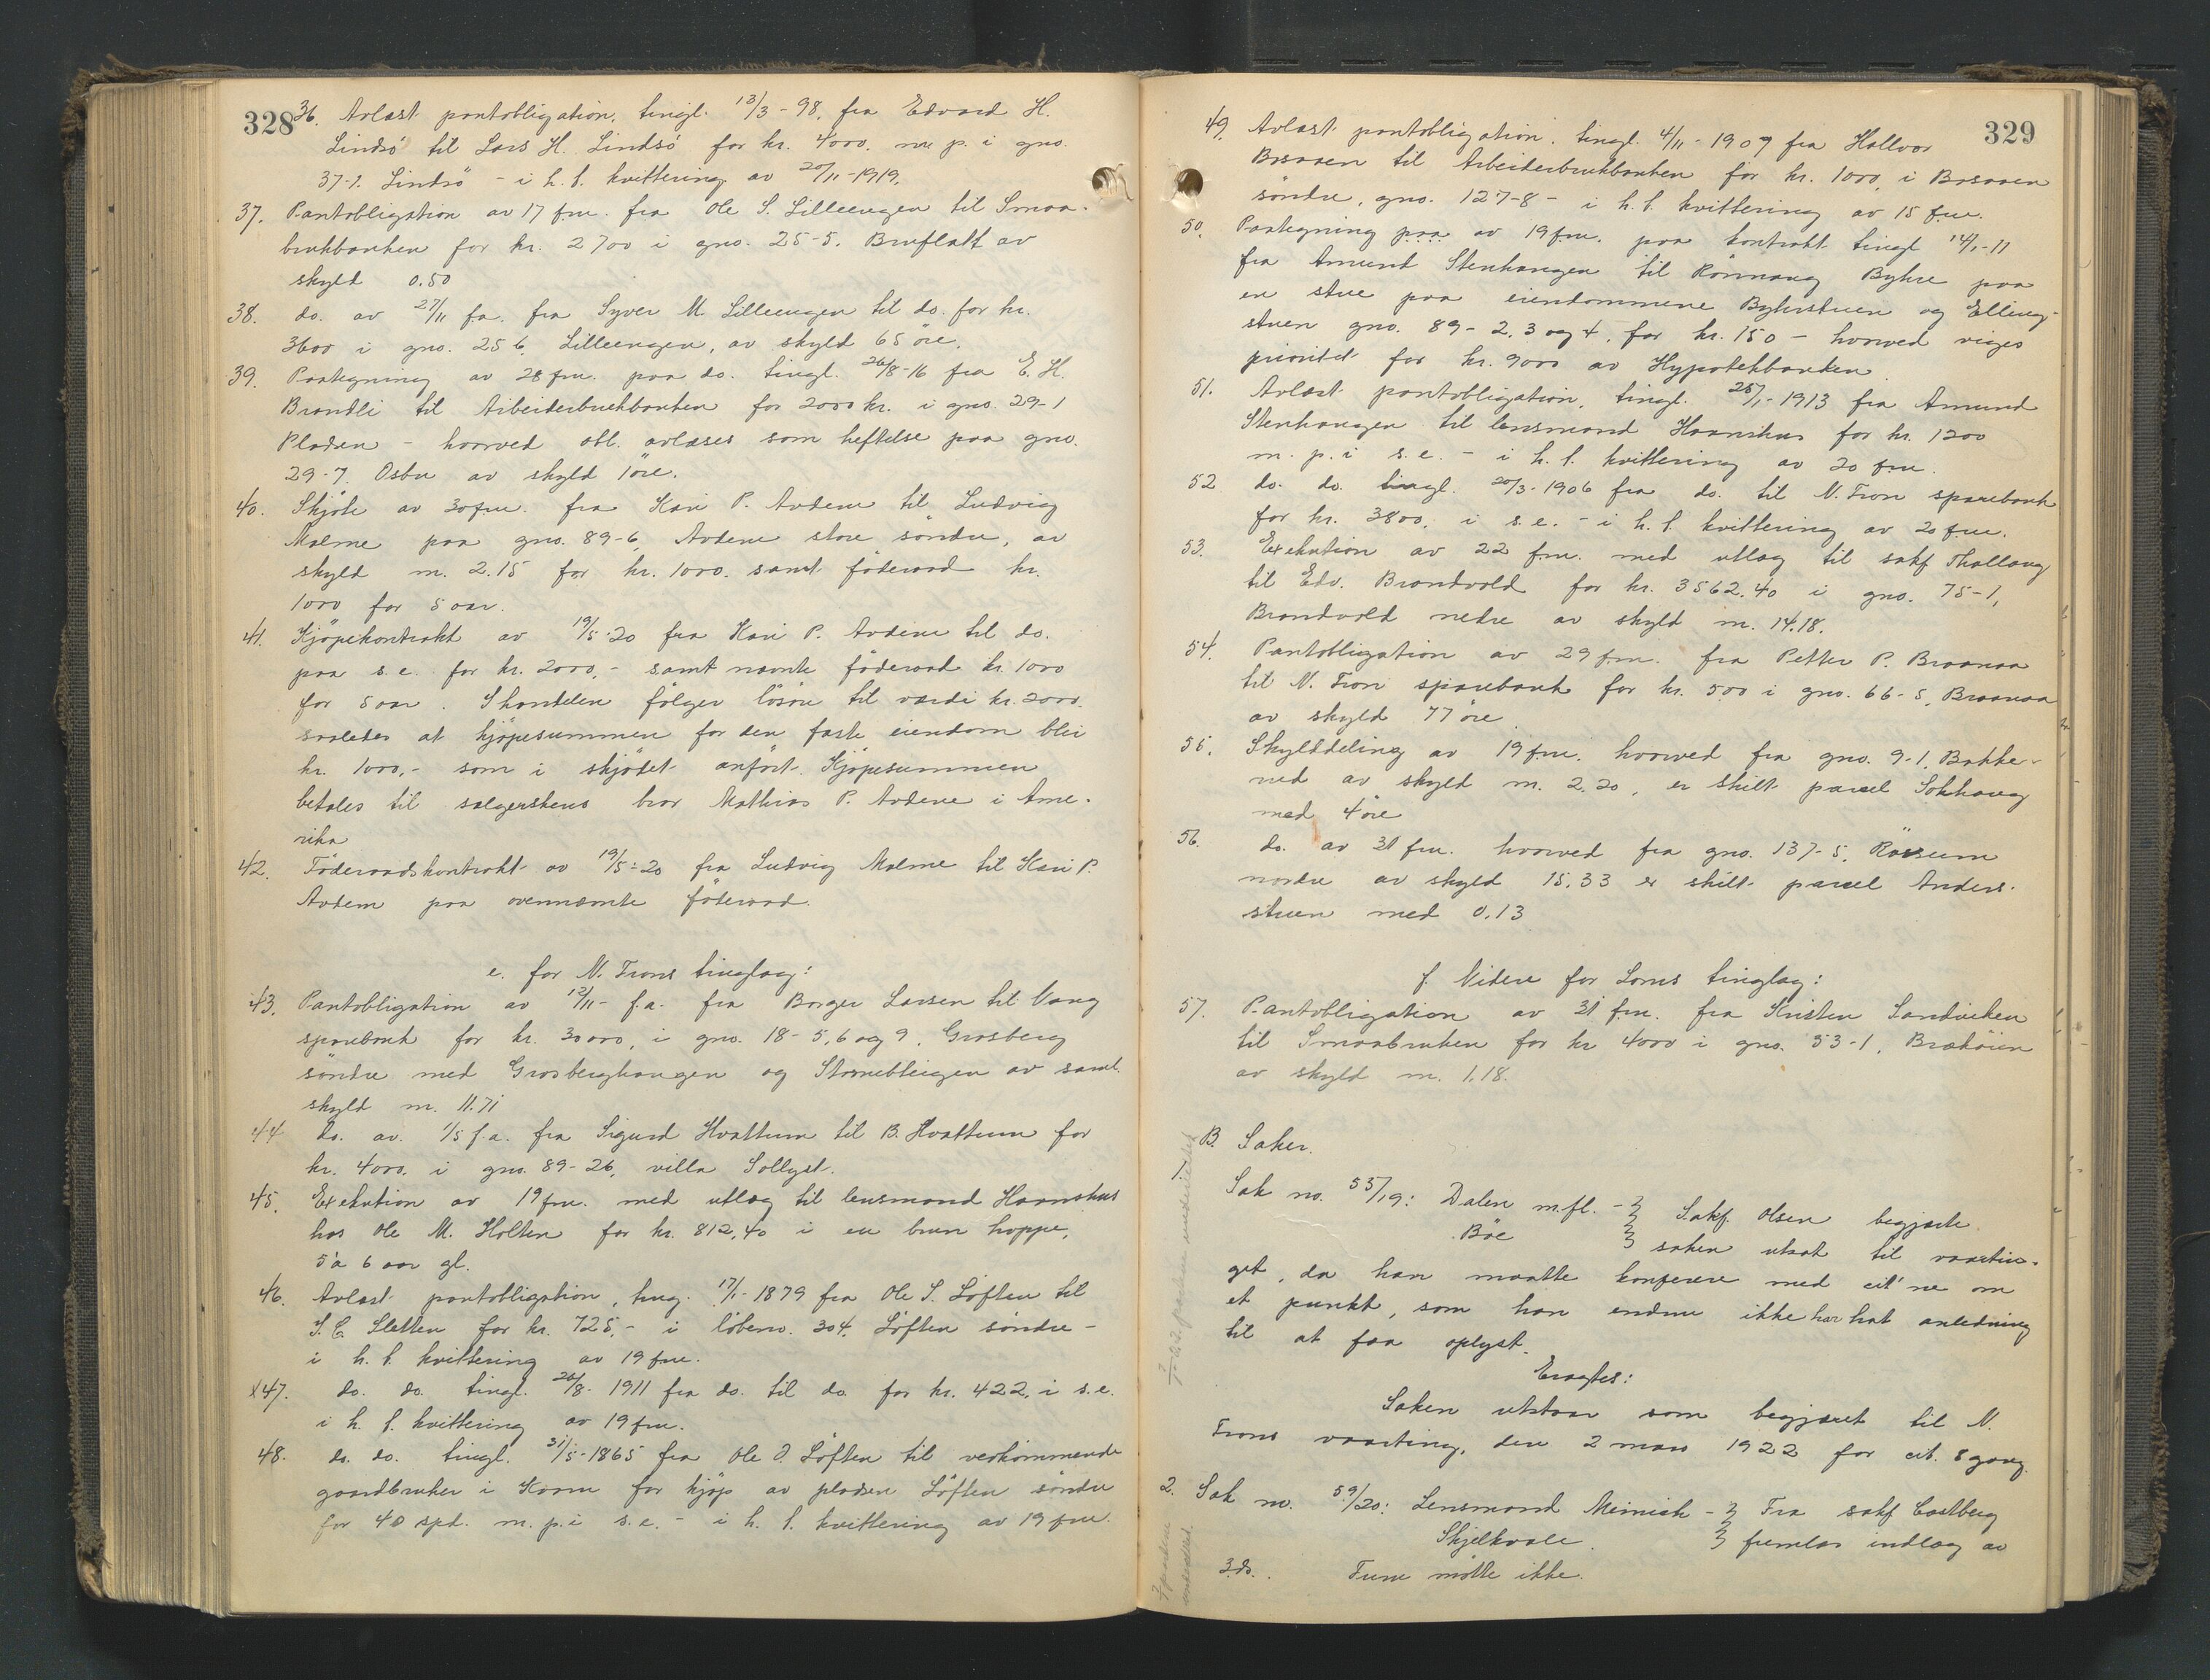 328
36. Avlæst pantobligation, tingl. 13/3 - 98, fra Edvard H.
Lindsö til Lars H. Lindsö for kr. 4000, m. p. i gno.
37-1. Lindsö - i h. t. kvittering av 20/11-1919.
37. Pantobligation av 17 f.m. fra Ole S. Lilleengen til Smaa-
brukbanken for kr. 2700 i gno. 25-5. Bruflatt av
skyld 0.50
38. do. av 27/11 f.a. fra Syver M. Lilleengen til do. for kr.
3600 i gno. 25 6, Lilleengen, av skyld 65 öre.
39. Paategning av 28 f.m. paa do. tingl. 26/8-16 fra E. H.
Brandli til Arbeiderbrukbanken for 2000 kr. i gno. 29-1
Pladsen - hvorved obl. avlæses som heftelse paa gno.
29-7. Osbu av skyld 1 öre.
40. Skjöte av 30 f.m. fra Kari P. Avdem til Ludvig
Malme paa gno. 89-6, Avdem store söndre, av
skyld m. 2.15 for kr. 1000. samt föderaad kr.
1000 for 5 aar.
41. Kjöpekontrakt av 19/5-20 fra Kari P. Avdem til do.
paa s.e. for kr. 2000,- samt nævnte föderaad kr. 1000
for 5 aar. I handelen fölger lösöre til værdi kr. 2000.
saaledes at kjöpesummen for den faste eiendom blir
kr. 1000,- som i skjötet anfört. Kjöpesummen
betales til sælgerskens bror Mathias P. Avdem i Ame-
rika
42. Föderaadskontrakt av 19/5-20 fra Ludvig Malme til Kari P.
Avdem paa ovennævnte föderaad.
e. for N. Frons tinglag:
43. Pantobligation av 12/11- f.a. fra Borger Larsen til Vang
sparebank for kr. 30000, i gno. 18-5,6 og 9. Grosberg
söndre med Grosberghaugen og Storrebleigen av saml.
skyld m. 11.71
44 do. av. 1/5 f.a. fra Sigurd Hvattum til B. Hvattum for
kr. 4000. i gno. 89-26, villa Sollyst.
45. Exekution av 19 f.m. med utlæg til lensmand Haarnshus
hos Ole M. Holten for kr. 812,40 i en brun hoppe,
5 à 6 aar gl.
46. Avlæst pantobligation, ting. 17/1-1879 fra Ole S. Löften til
S. C. Sletten for kr. 725,- i löbeno. 304. Löften söndre -
i h. t. kvittering av 19 f.m.
x47. do. do. tingl. 26/8- 1911 fra do. til do. for kr. 422, i s.e.
i h. t. kvittering av 19 f.m.
48. do. do. tingl. 31/5-1865 fra Ole O. Löften til vedkommende
gaardbruker i Kvam for kjöp av pladsen Löften söndre
for 40 spd. m. p. i s.e. - i h. t. kvittering av 19 f.m.
329
49. Avlæst pantobligation, tingl. 4/11-1909 fra Hallvor
Brsaaen til Arbeiderbrukbanken for kr. 1000, i Brsaaen
söndre, gno. 127-8 - i h. t. kvittering av 15 f.m.
50. Paategning paa av 19 f.m. paa kontrakt tingl 14/1-11
fra Amund Stenhaugen til Rönnaug Bykre paa
en stue paa eiendommene Bykrstuen og Elling-
stuen gno. 89-2, 3 og 4, for kr. 150 - hvorved viges
prioritet for kr. 9000 av Hypotekbanken
51. Avlæst pantobligation, tingl. 25/1-1913 fra Amund
Stenhaugen til lensmand Haarnshus for kr. 1200
m. p. i s.e. - i h. t. kvittering av 20 f.m.
52 do. do. tingl. 20/3-1906 fra do. til N. Fron sparebank
for kr. 3800, i s.e. - i h. t. kvittering av 20 f.m.
53. Exekution av 22 f.m. med utlæg til sakf Thallaug
til Edv. Brandvold for kr. 3562.40 i gno. 75-1,
Brandvold nedre av skyld m. 14.18.
54. Pantobligation av 29 f.m. fra Petter P. Braanaa
til N. Fron sparebank for kr. 500 i gno. 66-5, Braanaa
av skyld 77 öre.
55. Skylddeling av 19 f.m. hvorved fra gno. 9-1, Bakke-
rud av skyld m. 2.20, er skilt parcel Sokhaug
med 4 öre
56. do. av 31 f.m. hvorved fra gno. 137-5, Røssum
nordre av skyld 15.33 er skilt parcel Anders-
stuen med 0.13
f. Videre for Loms tinglag:
57. Pantobligation av 31 f.m. fra Kristen Sandviken
til Smaabruken for kr 4000 i gno. 53-1, Bræköien
av skyld m. 1.18.
B. Saker.
1. Sak no. 55/19: Dalen m.fl. - Sakf. Olsen begjærte
Böe saken utsat til vaartin-
get, da han maatte konferere med cit'ne om
et punkt, som han endnu ikke har hat anledning
til at faa oplyst.
Eragtes:
Saken utstaar som begjæret til N.
Frons vaarting, den 2 mars 1922 for cit. 8 gang.
2. Sak no. 59/20: Lensmand Meinich - Fra sakf Castberg
Skjelkvale. fremlas indlæg av
3. do. Furu mötte ikke.